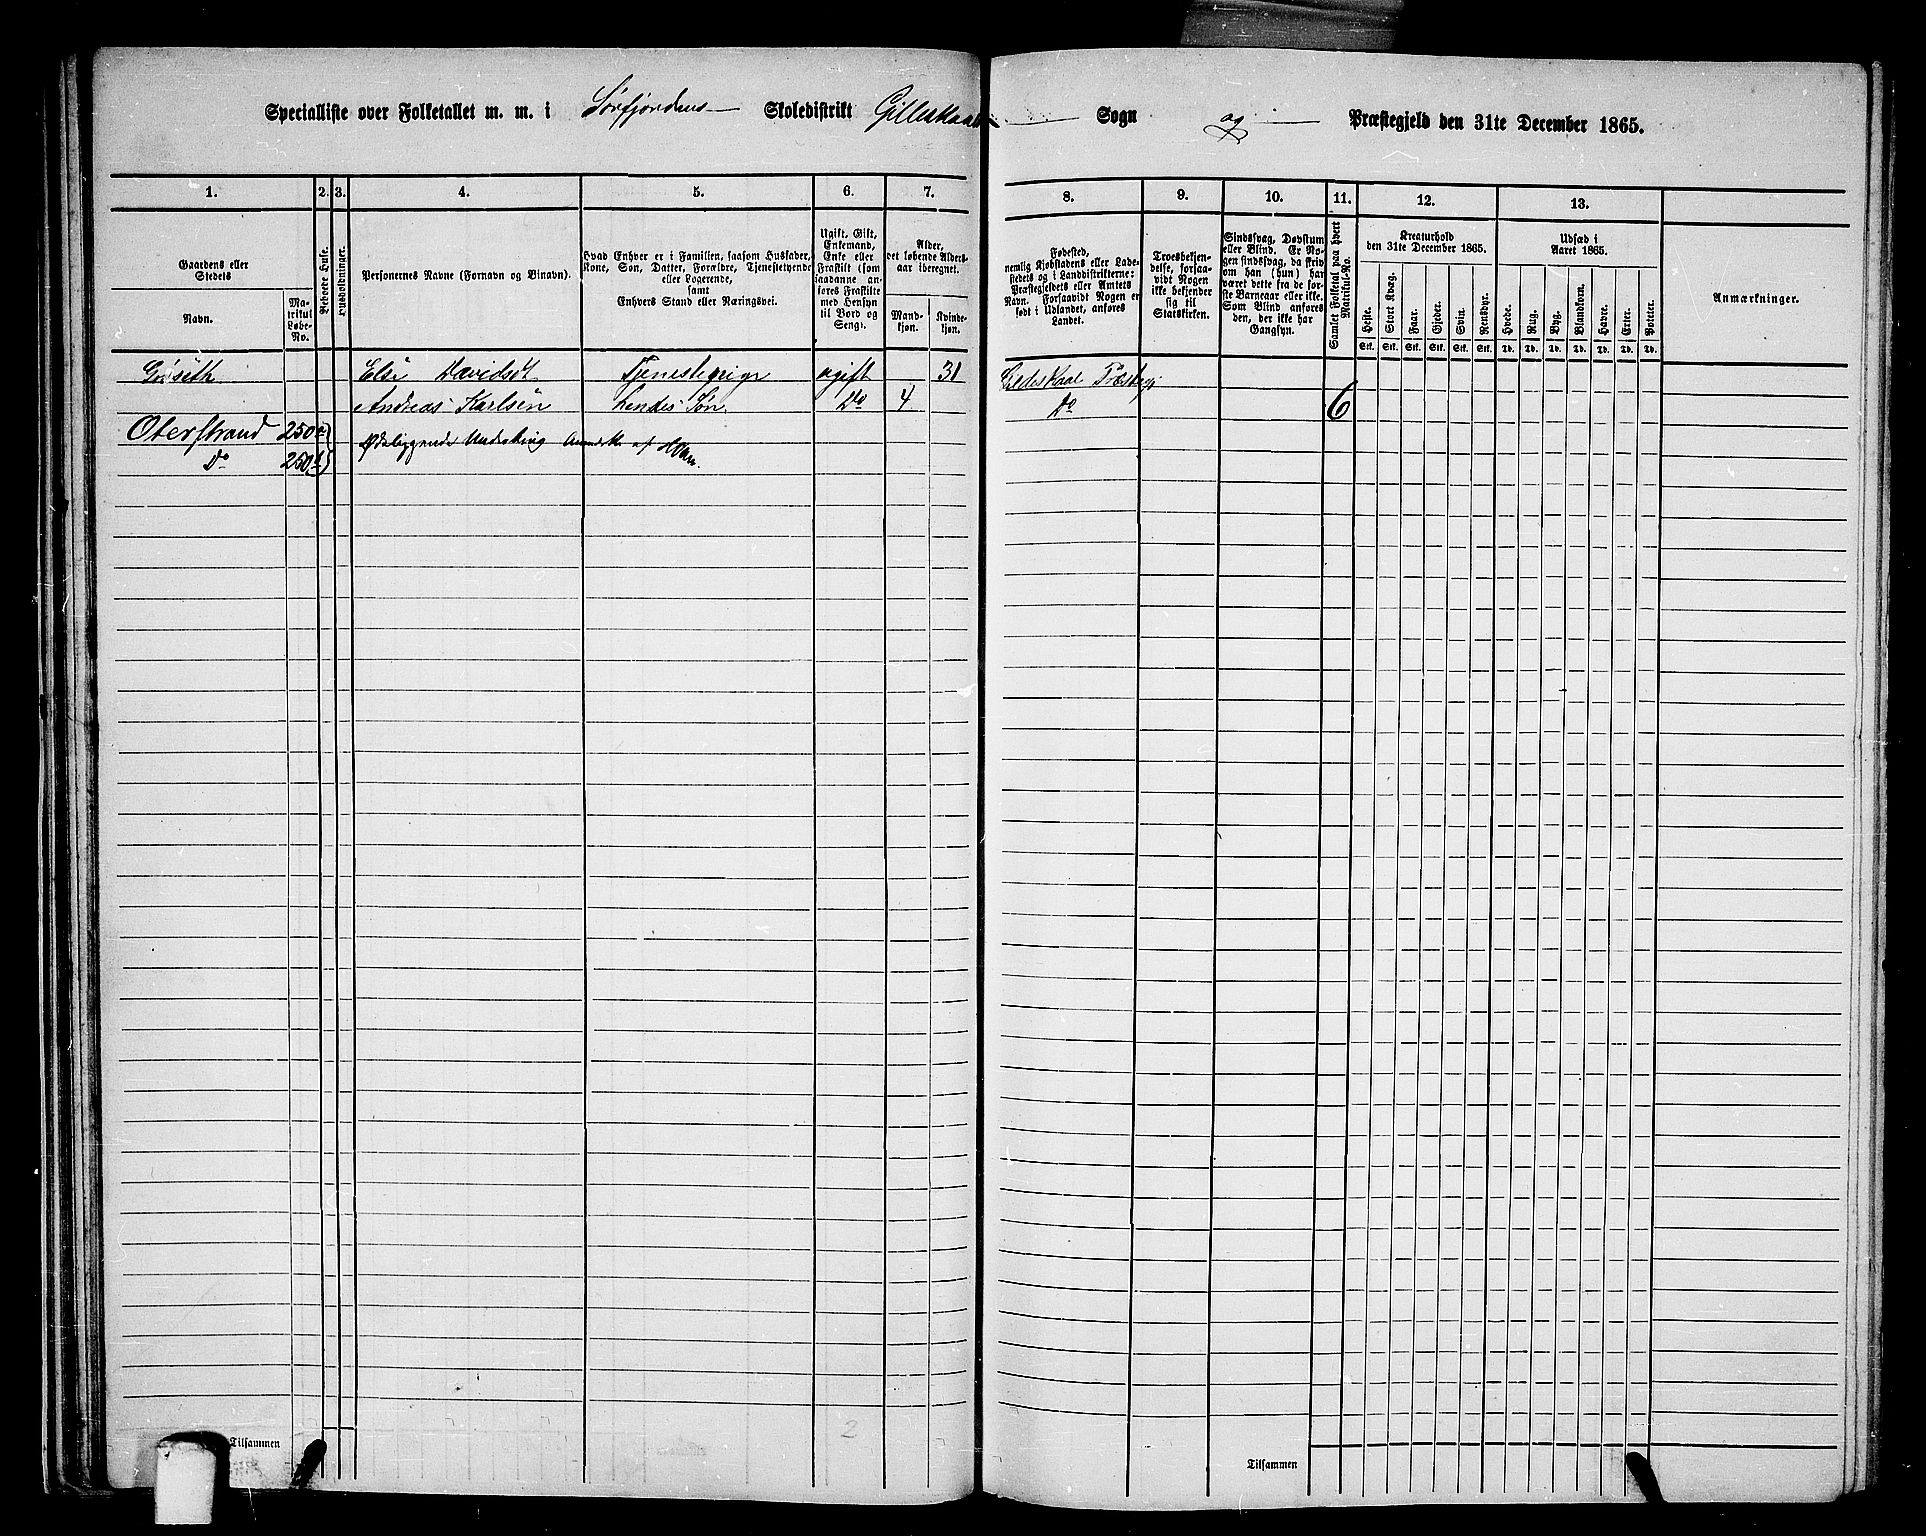 Specialliste over Folketallet m. m. i Sørfjordens Skoledistrikt Gilleskaals Sogn og Præstegjeld den 31te December 1865.
1. 2. 3. 4. 5. 6. 7. 8. 9. 10. 11. 12. 13.
Gaardens eller Stedets
Navn.
Matrikul Løbe-No.
Beboede Huse.
Husholdninger.
Personernes Navne (Fornavn og Binavn).
Hvad Enhver er i Familien, saasom Husfader, Kone, Søn, Datter, Forældre, Tjenestetyende eller Logerende,
samt
Enhvers Stand eller Næringsvei.
Ugift, Gift, Enkemand, Enke eller Fraskilt (som saadanne anføres Fraskilte med Hensyn til Bord og Seng).
Alder, det løbende Alders-aar iberegnet.
Mandkjøn.
Kvindekjøn.
Fødested, nemlig Kjøbstadens eller Ladestedets og i Landdistrikterne: Præstegjeldets eller Amtets Navn. Forsaavidt Nogen er født i Udlandet, anføres Landet.
Troesbekjendelse, forsaavidt Nogen ikke bekjender sig til Statskirken.
Sindssvag, Døvstum eller Blind. Er Nogen sindssvag, da skrives om han (hun) har været dette fra de første Barneaar eller ikke. Som Blind anføres den, der ikke har Gangsyn.
Samlet Folketal paa hvert Matrikul-No.
Kreaturhold den 31te December 1865.
Heste. Stort Kvæg. Faar. Gjeder. Svin. Rensdyr.
Stk. Stk. Stk. Stk. Stk. Stk.
Udsæd i Aaret 1865.
Hvede. Rug. Byg. Blandkorn. Havre. Erter. Poteter.
Td. Td. Td. Td. Td. Td. Td.
Anmærkninger.
Elsi Davidsdt Tjenestepige ugift 31 Gildeskaal Præstegj.
Andreas Karlsen Hendes Søn Do 4 Do 6
Oterstrand 250a
Do 250b
Ødeliggende
Tilsammen
2
Tilsammen